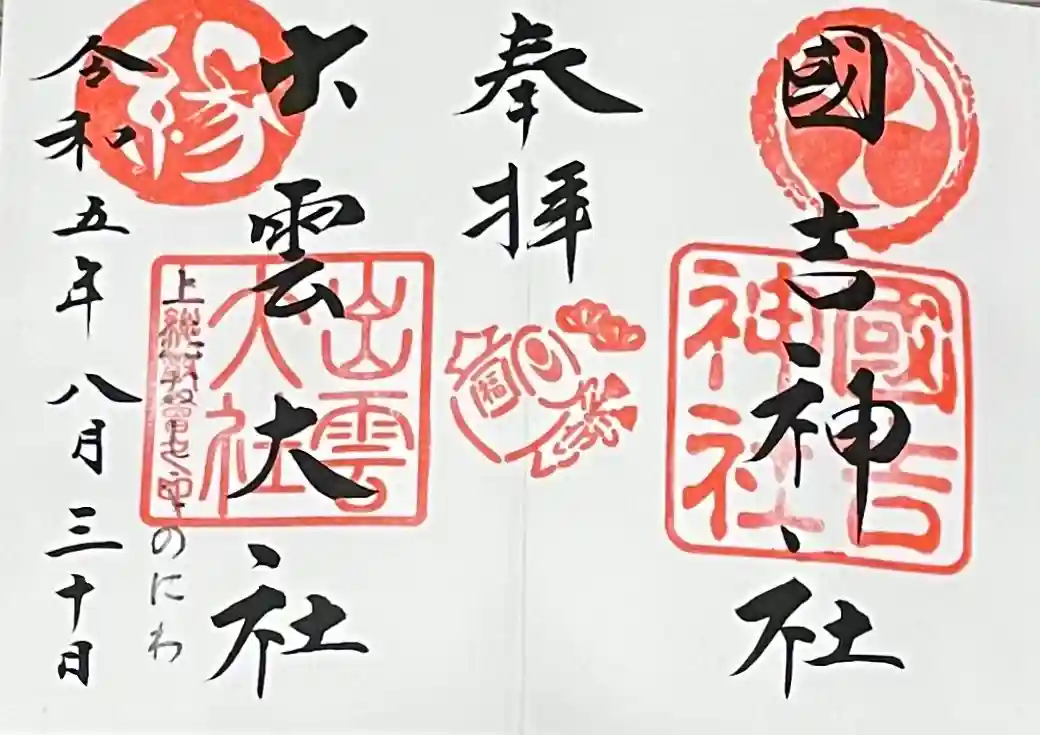 國吉神社
國吉神社
奉拝
福
出雲大社
出雲大社
縁
上総 のにわ
令和五年八月三十日